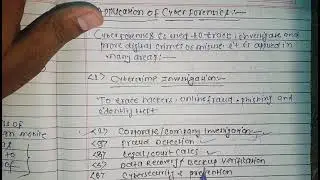 Application of Cyber Forensics:-
Cyber Forensics is used to track, investigate and
prove digital crimes or misuse it is applied in
many areas:-
<1> Cybercrime Investigation
To trace hackers, online fraud, phishing and
identity theft
<2> Corporate/Company Investigation
<3> Fraud Detection
<4> Legal/court cases
<5> Data Recovery/Backup Verification
<6> Cybersecurity & protection
of
mobile
to
of